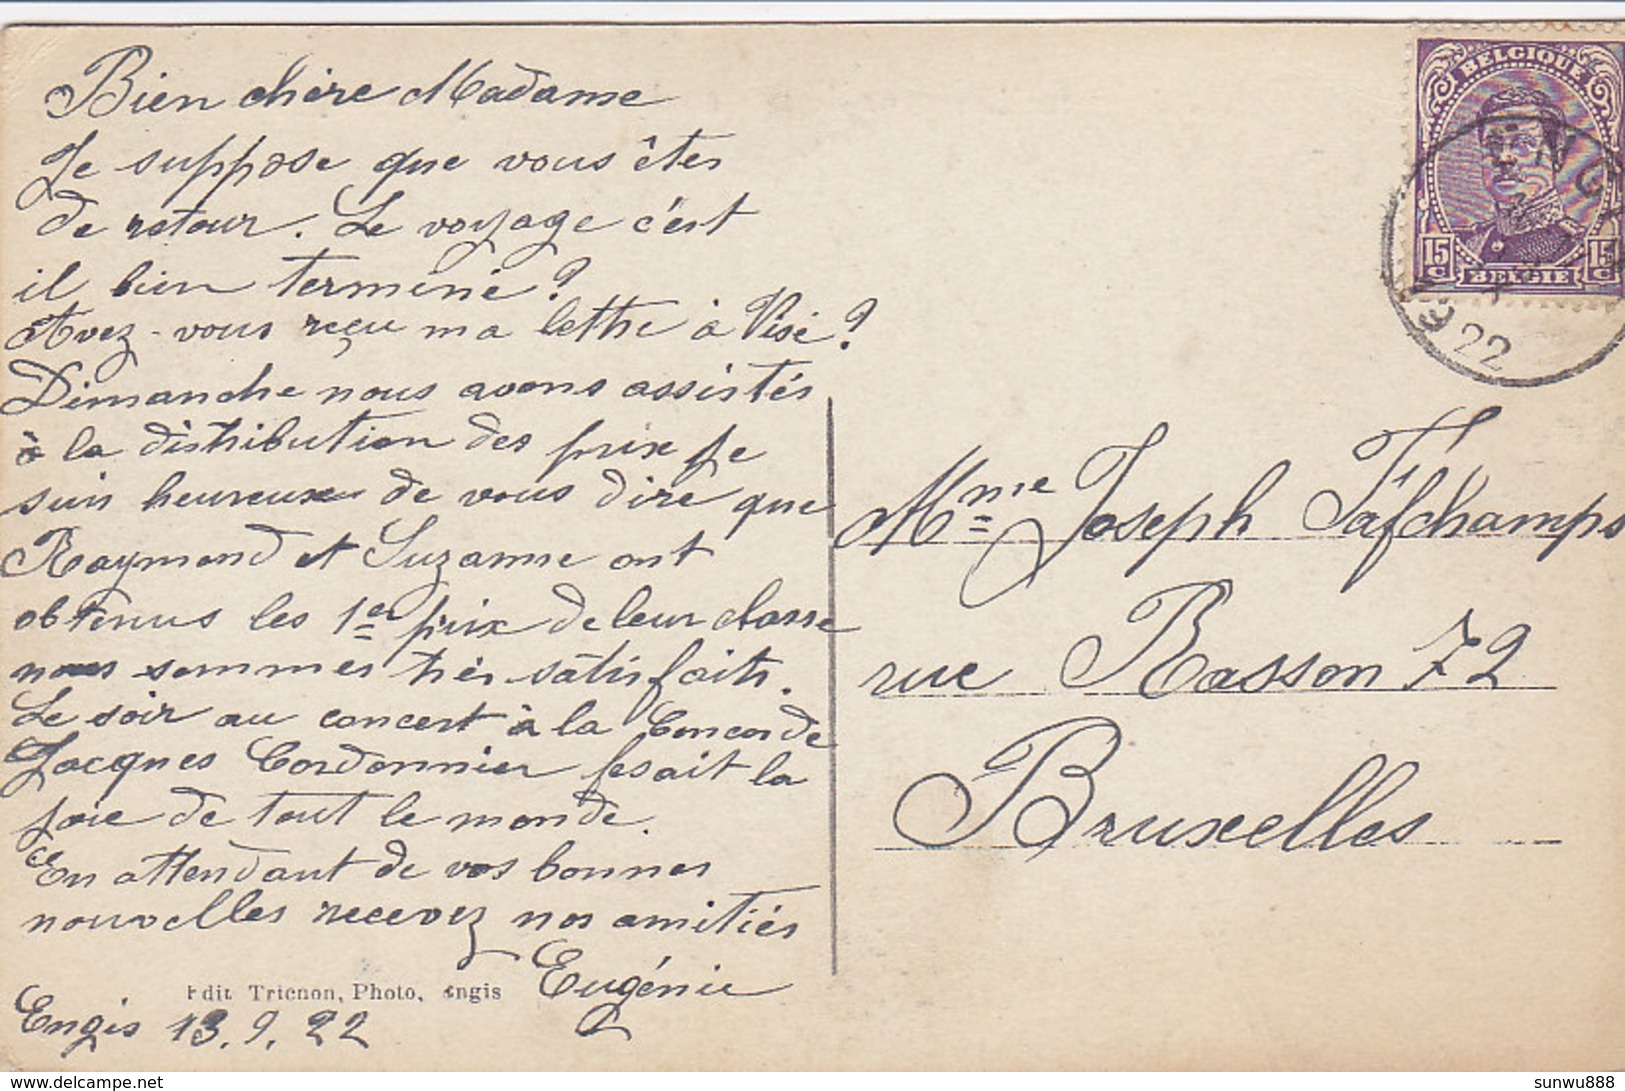 Bien chère Madame
Je suppose que vous êtes
de retour. Le voyage c'est
il bien terminé?
Avez-vous reçu ma lettre à Visé?
Dimanche nous avons assistés
à la distribution des prix je
suis heureuse de vous dire que
Raymond et Suzanne ont
obtenus les 1er prix de leur classe
nous sommes très satisfaits.
Le soir au concert à la Concorde
Jacques Cordonnier fesait la
joie de tout le monde.
En attendant de vos bonnes
nouvelles recevez nos amitiés
Eugénie
Edit Trienon, Photo, Engis
Engis 13.9.22
BELGIQUE
15 C 15 C
BELGIË
22
Mme Joseph Tafchamps
rue Rasson 72
Bruxelles
www.delcampe.net
sunwu888